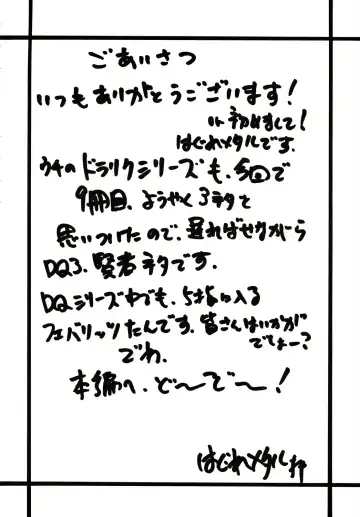 ごあいさつ
いつもありがとうございます!
&初めまして!
はぐれメタルです。
ウチのドラクエシリーズも、今回で
9冊目、ようやく3ネタと
思いついたので、遅ればせながら
DQ3、賢者ネタです。
DQシリーズ中でも、5指に入る
フェバリッツたんです。皆さんはいかが
でしょー?
でわ、
本編へ、ど〜ぞ〜!
はぐれメタル